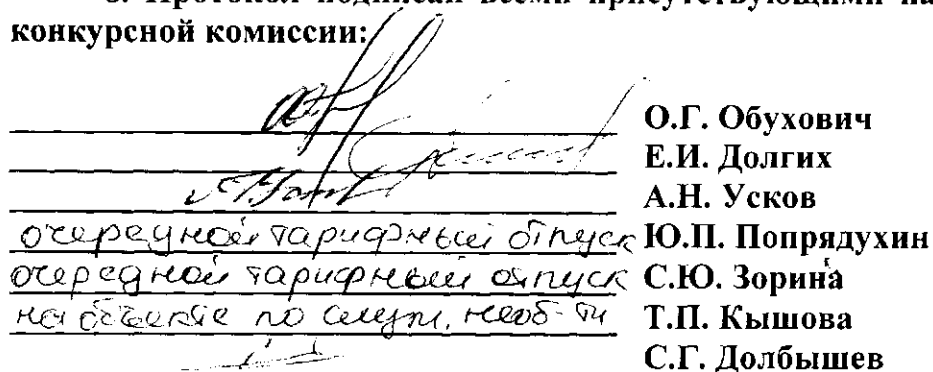 Протокол подписан всеми присутствующими на
конкурсной комиссии:
О.Г. Обухович
Е.И. Долгих
А.Н. Усков
очередной тарифный отпуск Ю.П. Попрядухин
очередной тарифный отпуск С.Ю. Зорина
на объекте по служ. необ-ти Т.П. Кышова
С.Г. Долбышев